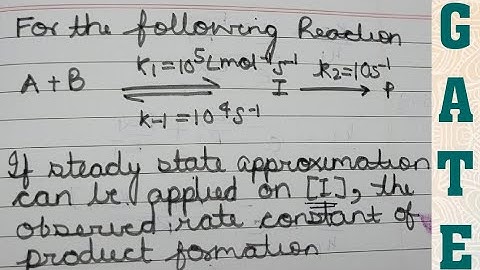 For the following Reaction
k₁=10⁵Lmol⁻¹s⁻¹ k₂=10s⁻¹
A+B ⇌ I → P
k-1=10⁴s⁻¹
If steady state approximation
can be applied on [I], the
observed rate constant of
product formation
GATE